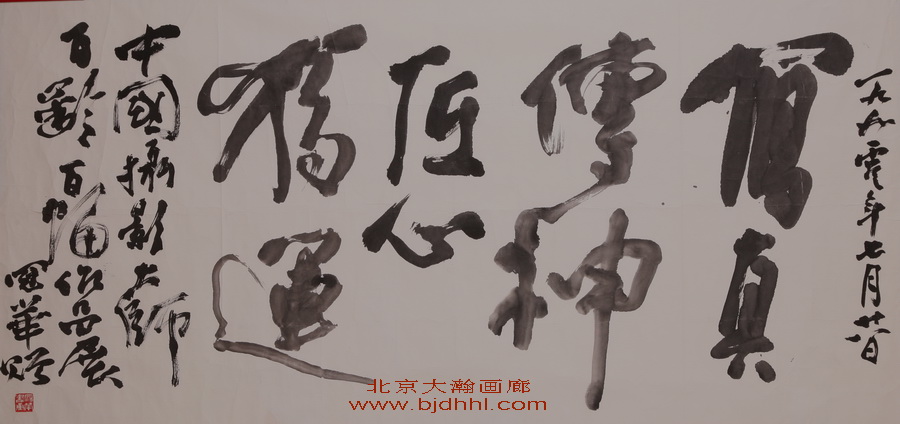 一九九零年七月廿日
寫真
傳神
匠心
獨運
中國攝影大師
百齡百幅作品展
北京大瀚画廊
www.bjdhhl.com